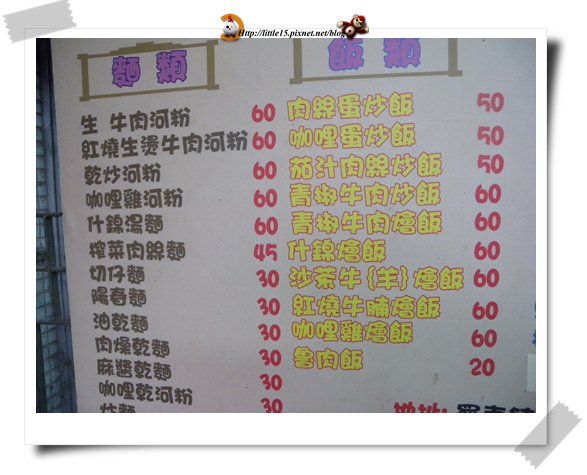 Http://little15.pixnet.net/blog
麵類
生 牛肉河粉 60
紅燒生燙牛肉河粉 60
乾炒河粉 60
咖哩雞河粉 60
什錦湯麵 60
榨菜肉絲麵 45
切仔麵 30
陽春麵 30
油乾麵 30
肉燥乾麵 30
麻醬乾麵 30
咖哩乾河粉 30
炒麵
飯類
肉絲蛋炒飯 50
咖哩蛋炒飯 50
茄汁肉絲炒飯 50
青椒牛肉炒飯 60
青椒牛肉燴飯 60
什錦燴飯 60
沙茶牛{羊}燴飯 60
紅燒牛腩燴飯 60
咖哩雞燴飯 60
魯肉飯 20
地址: